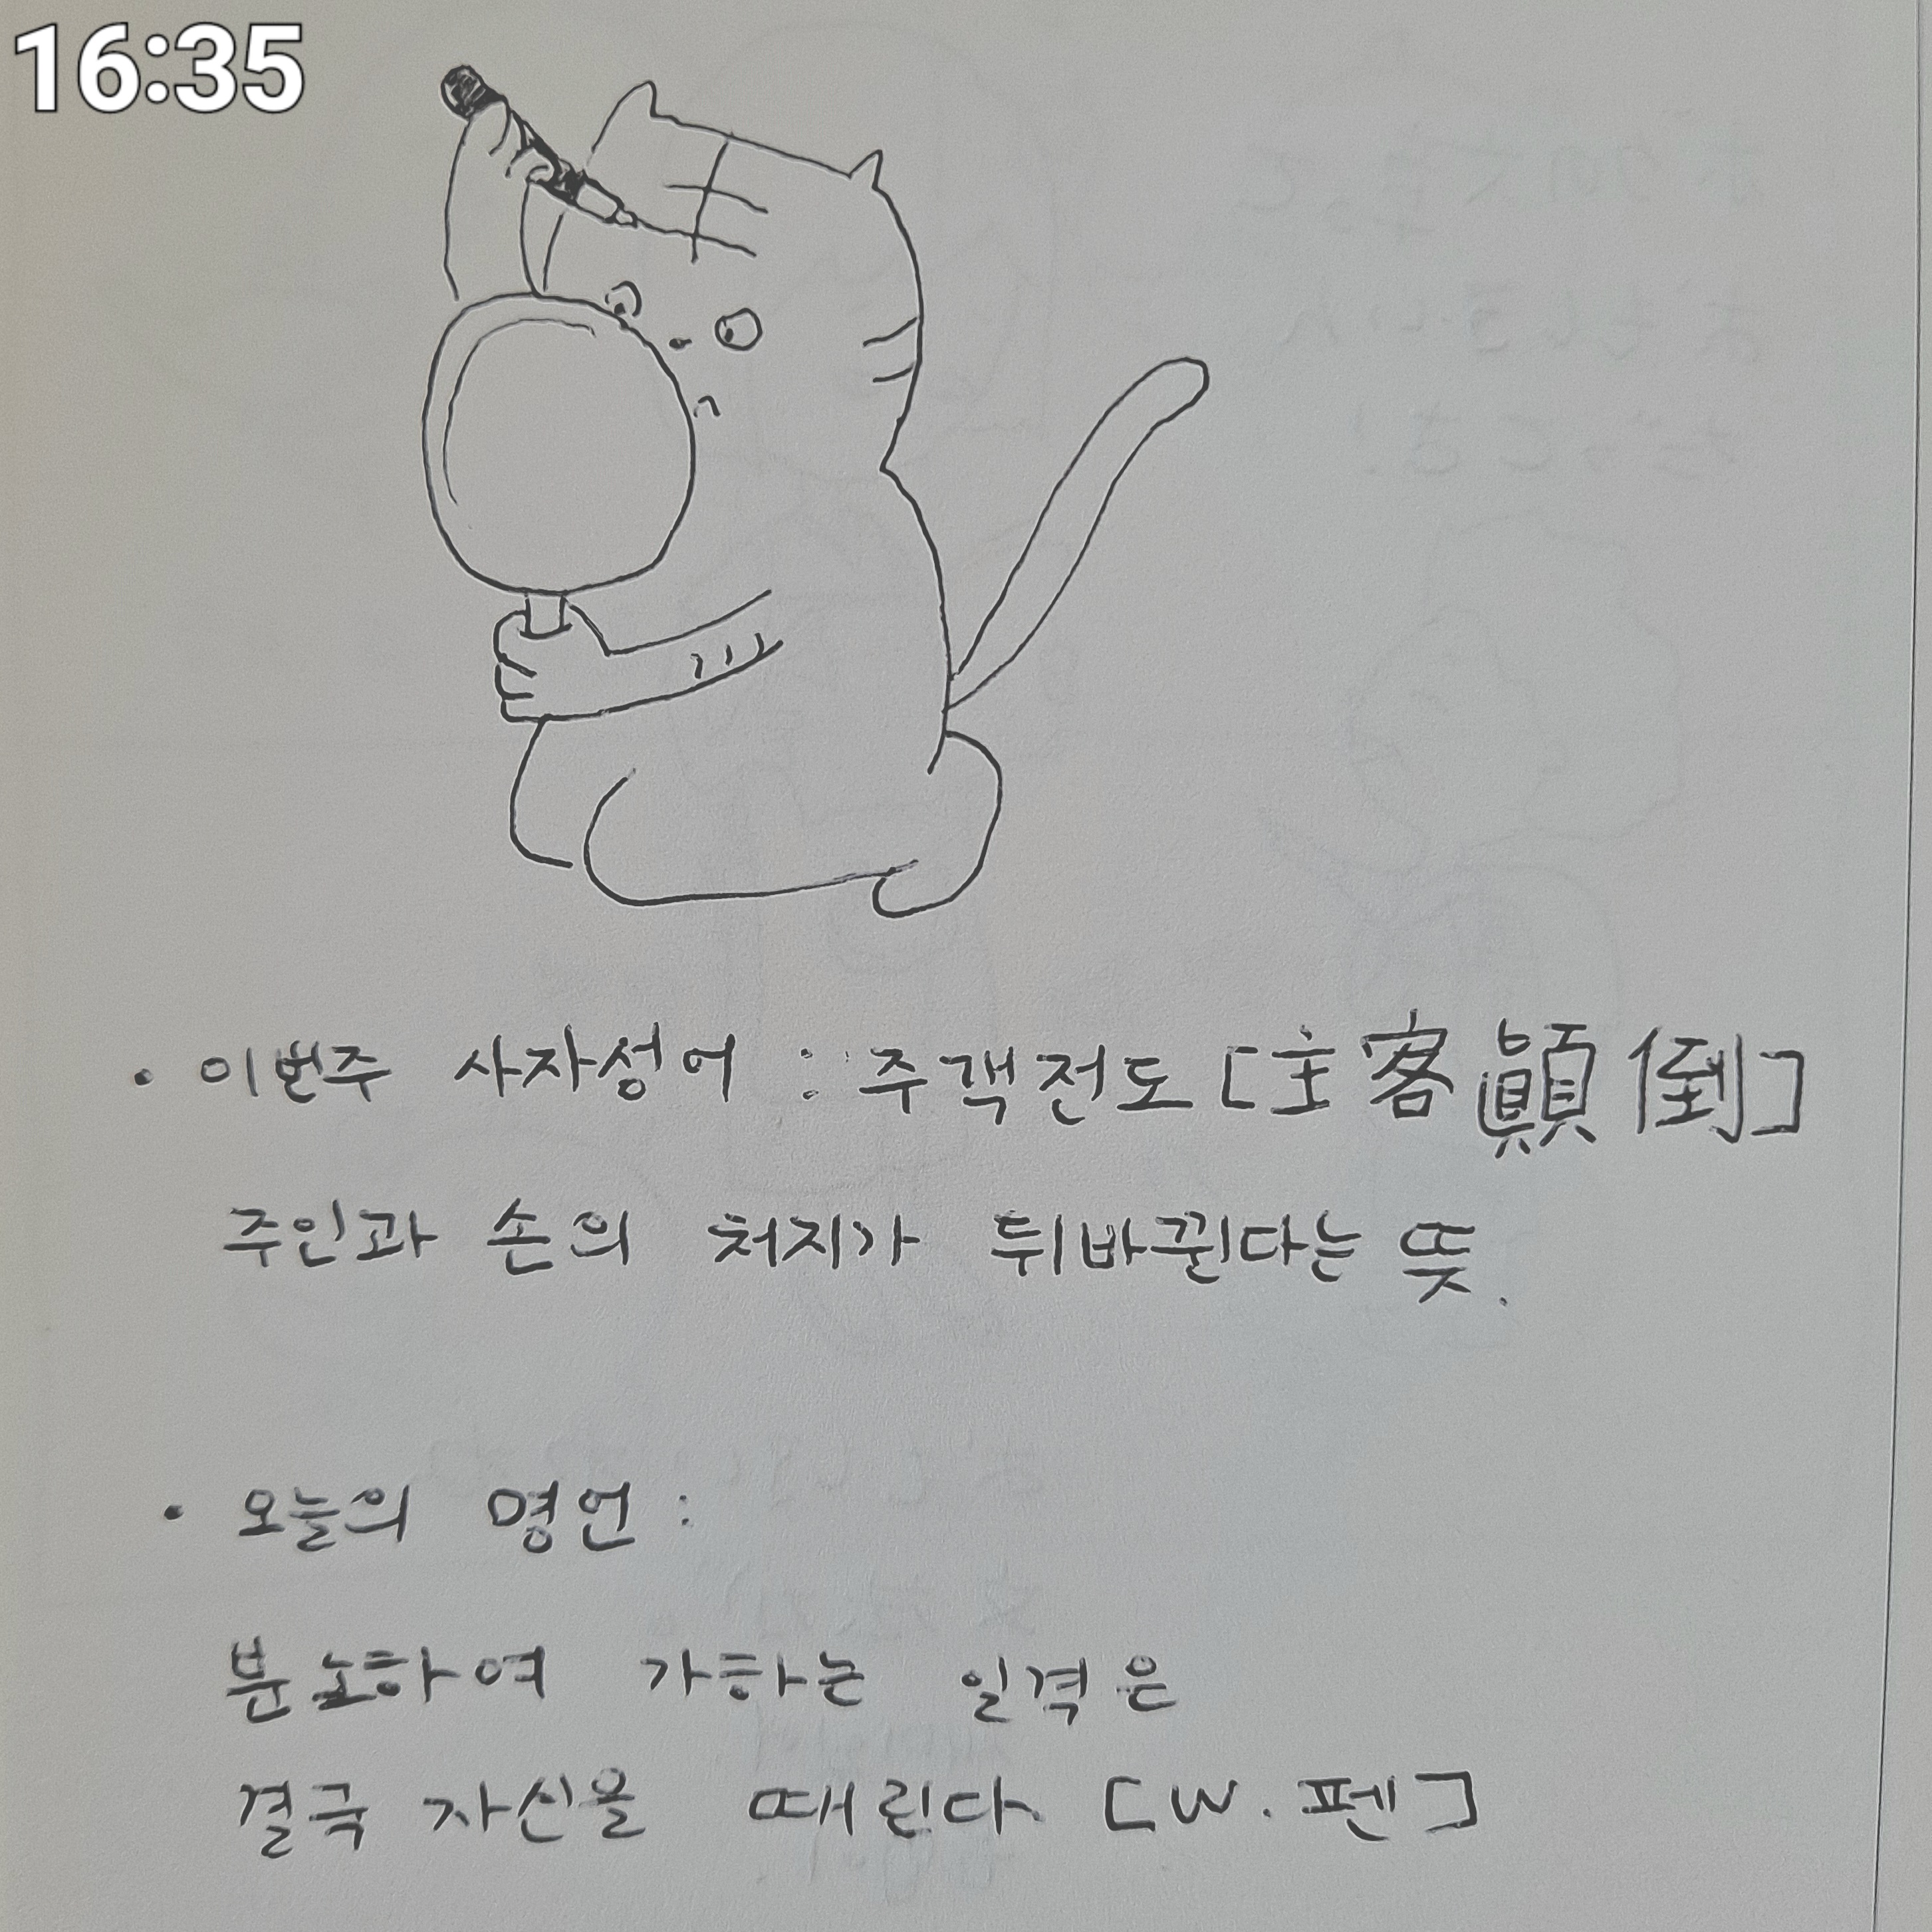 16:35
• 이번주 사자성어 : 주객전도 [主客顚倒]
주인과 손의 처지가 뒤바뀐다는 뜻.
• 오늘의 명언 :
분노하여 가하는 일격은
결국 자신을 때린다 [W. 펜]